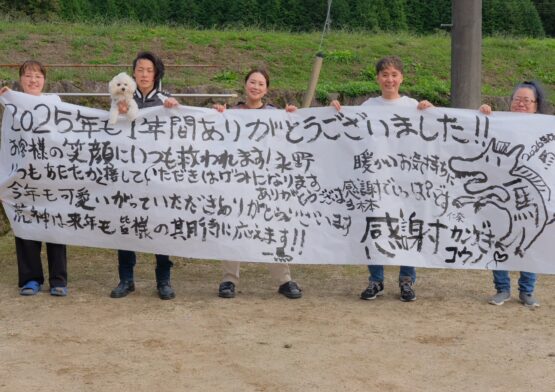 2025年も1年間ありがとうございました!!
お客様の笑顔にいつも救われます!永野
いつもあたたか接していただきはげみになります
ありがとうございます
今年も可愛いがっていただきありがとうございます
荒神は来年も皆様の期待に応えます!!
一馬
暖かいお気持ちに
感謝でいっぱいです
感謝す
2026
馬